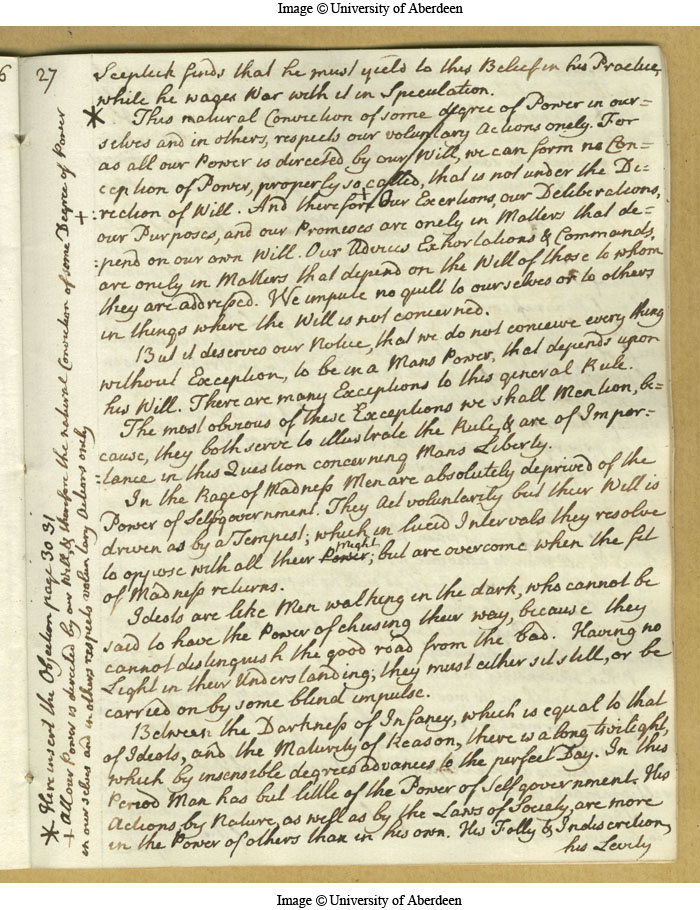 Image © University of Aberdeen
6
27
Sceptick finds that he must yield to this Belief in his Practice,
while he wages War with it in Speculation.
* This natural Conviction of some degree of Power in our=
selves and in others, respects our voluntary Actions onely. For
as all our Power is directed by our Will, we can form no Con=
ception of Power, properly so called, that is not under the Di=
+ :rection of Will. And therefore + Our Exertions, our Deliberations,
our Purposes, and our Promises are onely in Matters that de=
:pend on our own Will. Our Advices Exhortations & Commands,
are onely in Matters that depend on the Will of those to whom
they are addressed. We impute no guilt to ourselves or to others
in things where the Will is not concerned.
But it deserves our Notice, that we do not conceive every thing
without Exception, to be in a Mans Power, that depends upon
his Will. There are many Exceptions to this general Rule.
The most obvious of these Exceptions we shall Mention, be=
cause, they both serve to illustrate the Rule, & are of Impor=
:tance in this Question concerning Mans Liberty.
In the Rage of Madness Men are absolutely deprived of the
Power of Selfgovernment. They Act voluntarily but their Will is
driven as by a Tempest; which in lucid Intervals they resolve
Might
to oppose with all their Power; but are overcome when the fit
of Madness returns.
Ideots are like Men walking in the dark, who cannot be
said to have the Power of chusing their way, because they
cannot distinguish the good road from the bad. Having no
Light in their Understanding; they must either sit still, or be
carried on by some blind impulse.
Between the Darkness of Infancy, which is equal to that
of Ideots, and the Maturity of Reason, there is a long twilight,
which by insensible degrees advances to the perfect Day. In this
Period Man has but little of the Power of Selfgovernment. His
Actions, by Nature, as well as by the Laws of Society, are more
in the Power of others than in his own. His Folly & Indiscretion,
his Levity
* Here insert the Objection page 30 31
+ All our Power is directed by our Will, & therefore the natural Conviction of some Degree of Power
in our selves and in others respects voluntary Actions onely
Image © University of Aberdeen